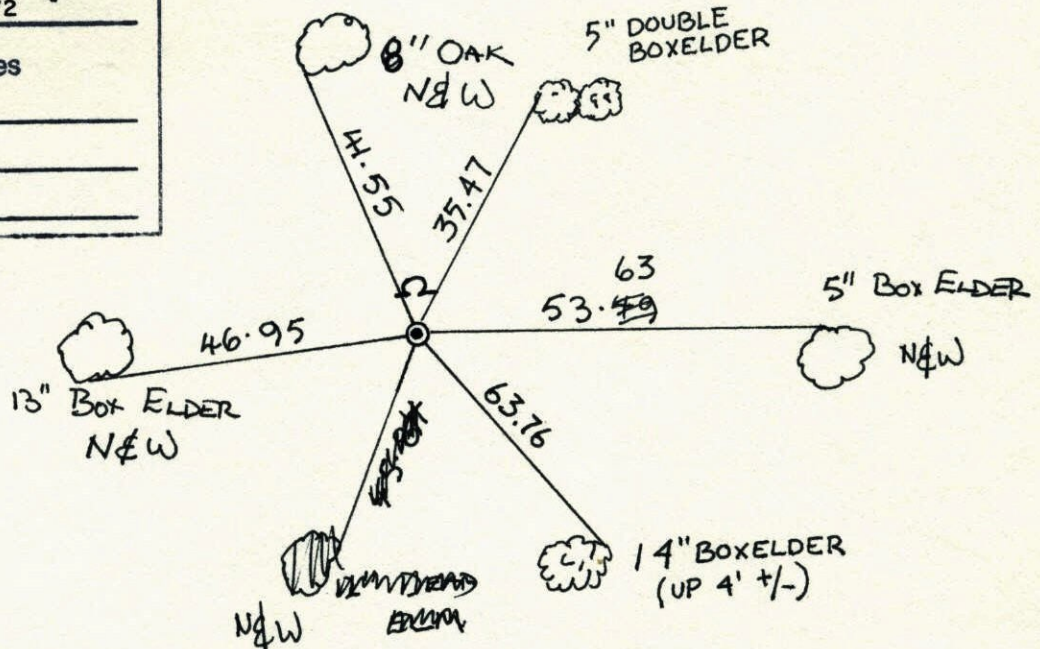 /2
es
8" OAK
N&W
5" DOUBLE
BOXELDER
41.55
35.47
63
53.49
5" BOX ELDER
N&W
46.95
13" BOX ELDER
N&W
63.76
14" BOXELDER
(UP 4' +/-)
N&W